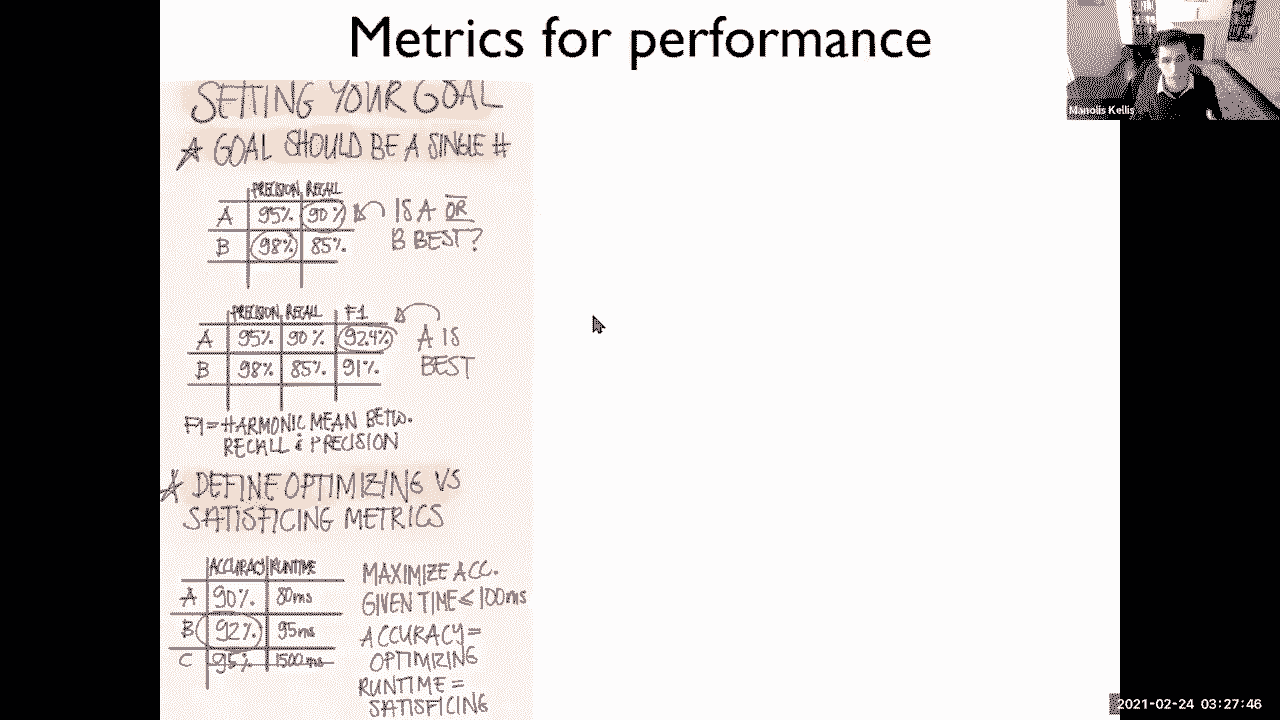 Metrics for performance
Manolis Kellis
SETTING YOUR GOAL
★ GOAL SHOULD BE A SINGLE #
PRECISION RECALL
A 95% 90%
B 98% 85%
IS A OR
B BEST?
PRECISION RECALL F1
A 95% 90% 92.4%
B 98% 85% 91%
A IS
BEST
F1 = HARMONIC MEAN BETW.
RECALL & PRECISION
★ DEFINE OPTIMIZING VS
SATISFICING METRICS
ACCURACY RUNTIME
A 90% 80ms
B 92% 95ms
C 95% 1500ms
MAXIMIZE ACC.
GIVEN TIME ≤ 100ms
ACCURACY =
OPTIMIZING
RUNTIME =
SATISFICING
2021-02-24 03:27:46